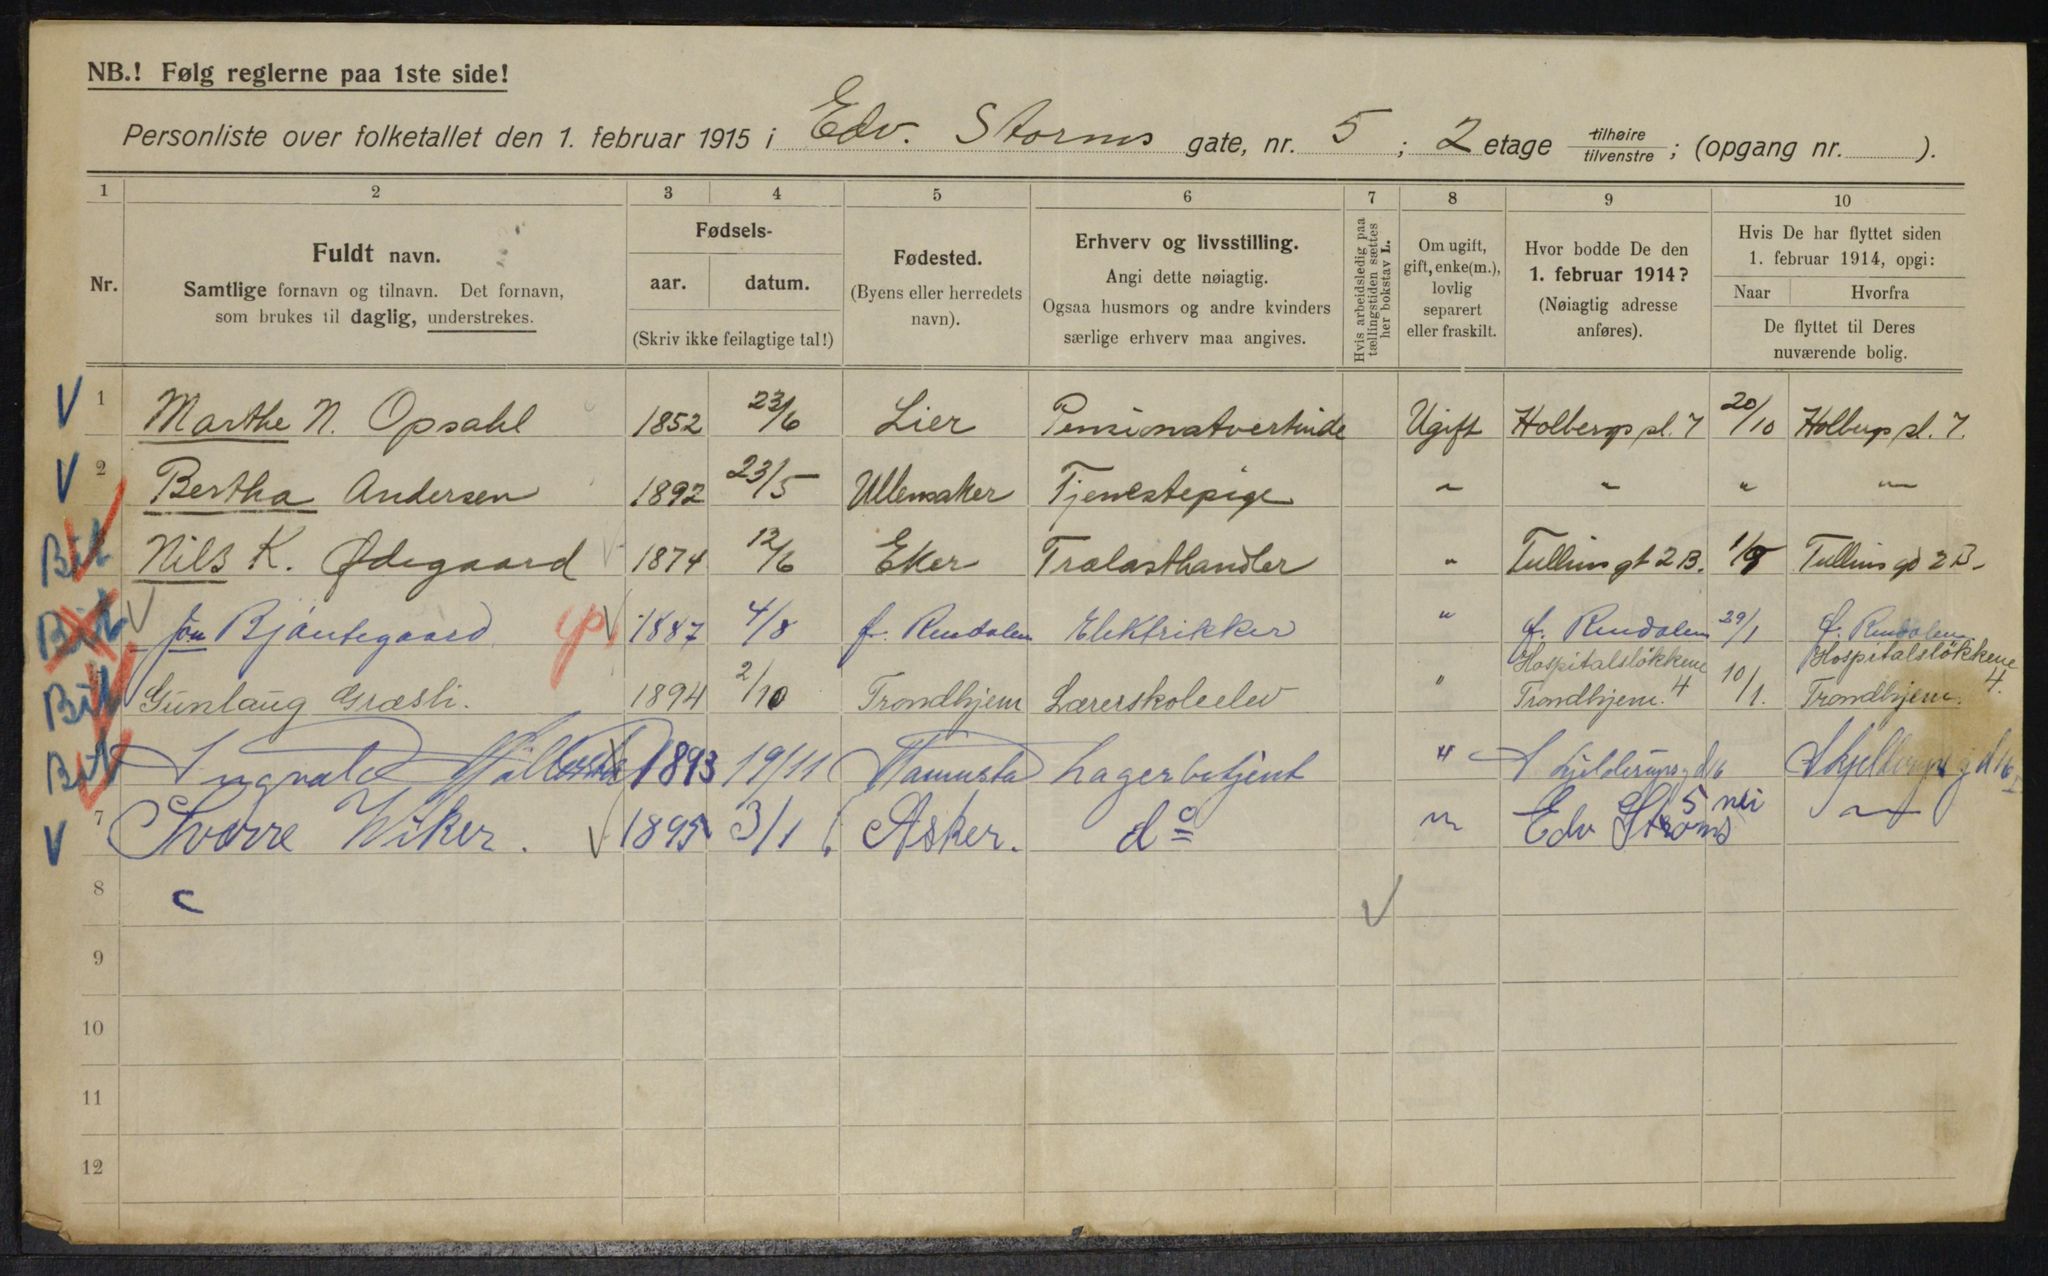 NB.! Følg reglerne paa 1ste side!
Personliste over folketallet den 1. februar 1915 i Edv. Storms gate, nr. 5 ; 2 etage tilhøire / tilvenstre ; (opgang nr. ).
1 2 3 4 5 6 7 8 9 10
Nr.
Fuldt navn.
Samtlige fornavn og tilnavn. Det fornavn,
som brukes til daglig, understrekes.
Fødsels-
aar. datum.
(Skriv ikke feilagtige tal!)
Fødested.
(Byens eller herredets
navn).
Erhverv og livsstilling.
Angi dette nøiagtig.
Ogsaa husmors og andre kvinders
særlige erhverv maa angives.
Hvis arbeidsledig paa
tællingstiden sættes
her bokstav L.
Om ugift,
gift, enke(m.),
lovlig
separert
eller fraskilt.
Hvor bodde De den
1. februar 1914?
(Nøiagtig adresse
anføres).
Hvis De har flyttet siden
1. februar 1914, opgi:
Naar Hvorfra
De flyttet til Deres
nuværende bolig.
V 1 Marthe N. Opsahl 1852 23/6 Lier Pensionatvertinde Ugift Holbergs pl. 7 20/10 Holbergs pl. 7.
V 2 Bertha Andersen 1892 23/5 Ullensaker Tjenestepige " " " "
Bil Nils K. Ødegaard 1874 12/6 Eker Trælasthandler " Tullins gt 2B. 1/9 Tullins gd 2B.
Bil Jon Bjöntegaard 1887 4/8 f. Rendalen Elektrikker " f. Rendalen 29/1 f. Rendalen
Bil Gunlaug Græsli. 1894 2/10 Trondhjem Lærerskoleelev " Hospitalsløkkene 4 Trondhjem. 10/1. Hospitalsløkkene 4. Trondhjem.
Bil 1893 19/11 Lagerbetjent "
V 7 Sverre Wiker. 1895 3/1 Asker. do " Edv Stroms 5 nei "
8
9
10
11
12